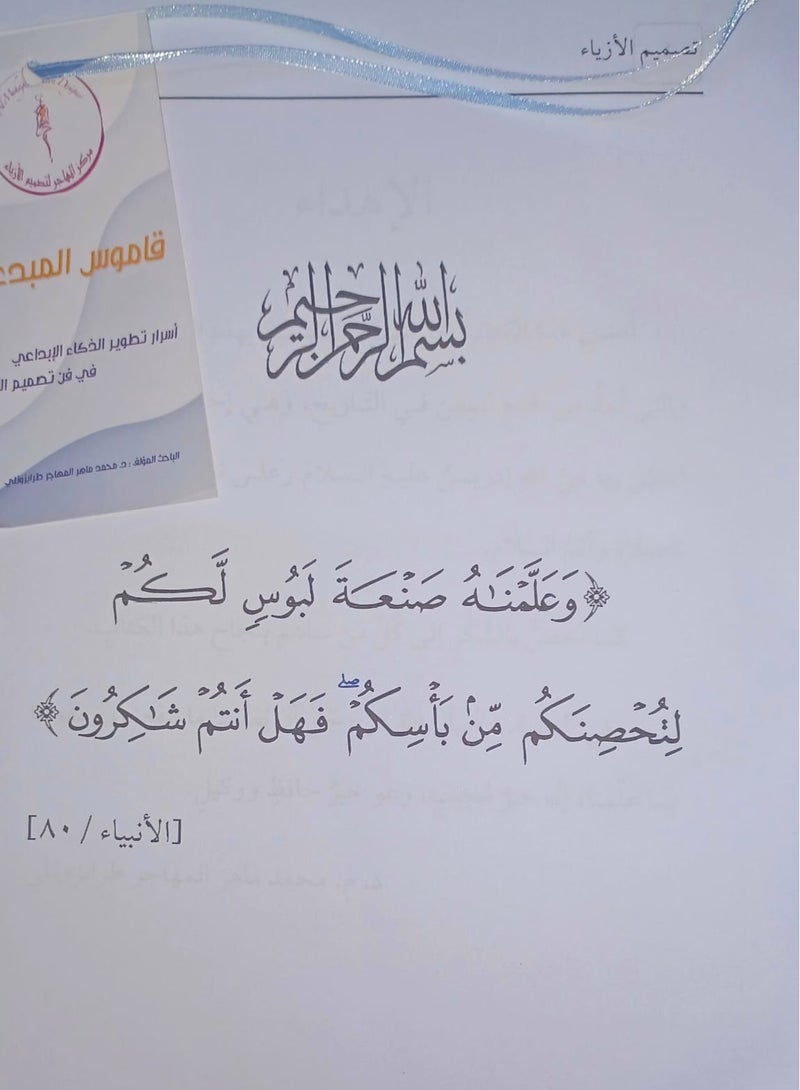 تصميم الأزياء
مركز المهاجر لتصميم الأزياء
قاموس
أسرار تطوير الذكاء الإبداعي
في فن تصميم
الباحث المؤلف : د. محمد ماهر المهاجر طرابزونلي
بسم الله الرحمن الرحيم
﴿وَعَلَّمْنَٰهُ صَنْعَةَ لَبُوسٍ لَّكُمْ
لِتُحْصِنَكُم مِّنۢ بَأْسِكُمْ ۖ فَهَلْ أَنتُمْ شَٰكِرُونَ﴾
[الأنبياء / ٨٠]